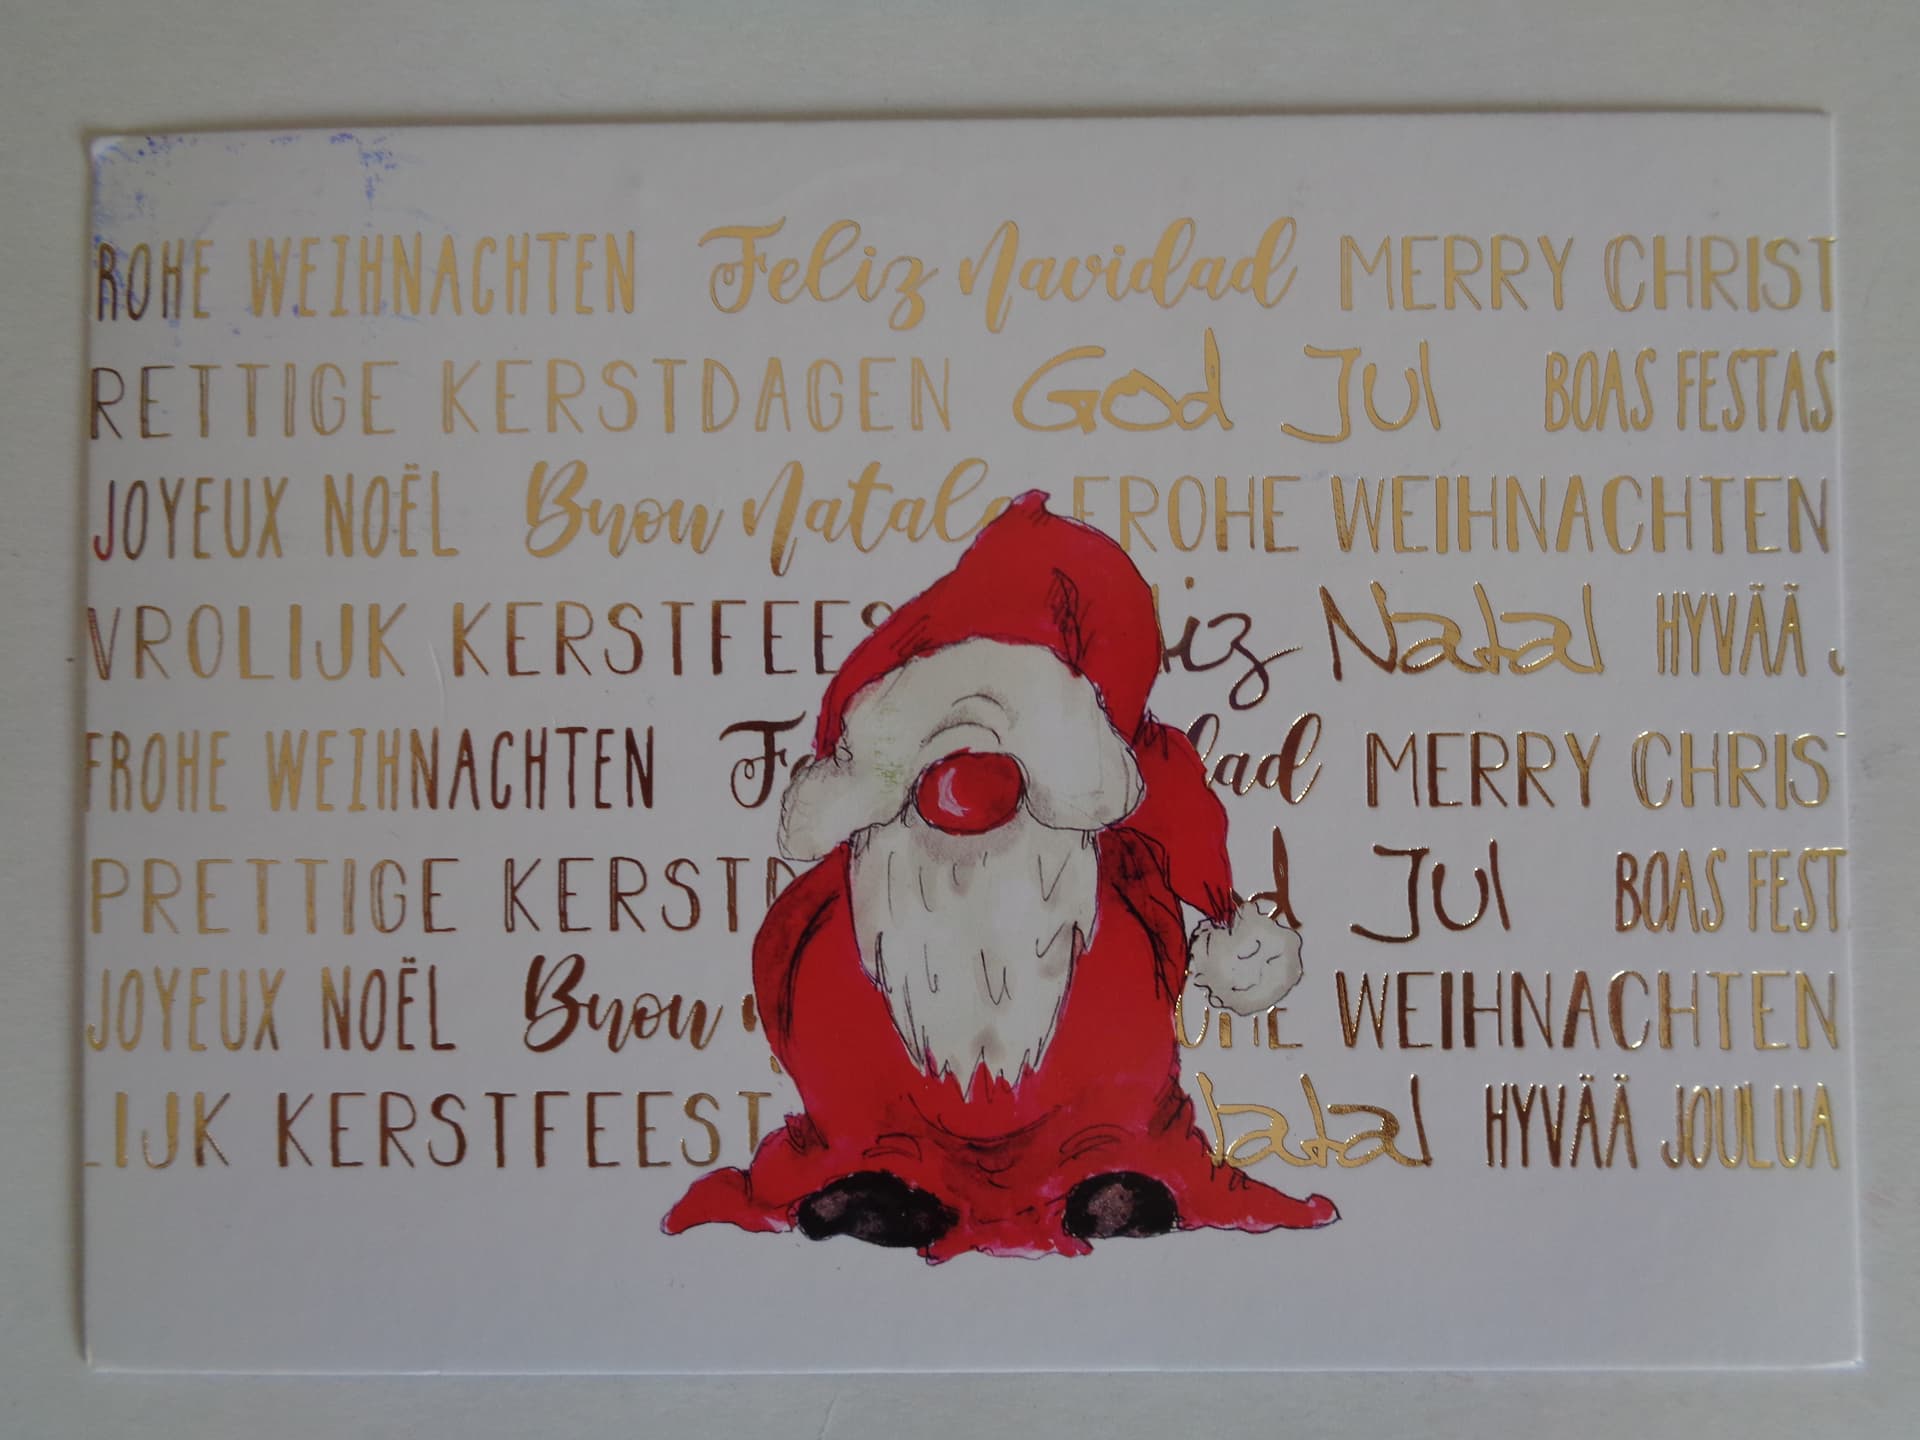 ROHE WEIHNACHTEN Feliz Navidad MERRY CHRIST
RETTIGE KERSTDAGEN God Jul BOAS FESTAS
JOYEUX NOËL Buon Natale FROHE WEIHNACHTEN
VROLIJK KERSTFEES liz Natal HYVÄÄ J
FROHE WEIHNACHTEN Fe dad MERRY CHRIS
PRETTIGE KERSTD od Jul BOAS FEST
JOYEUX NOËL Buon OHE WEIHNACHTEN
LIJK KERSTFEEST Natal HYVÄÄ JOULUA